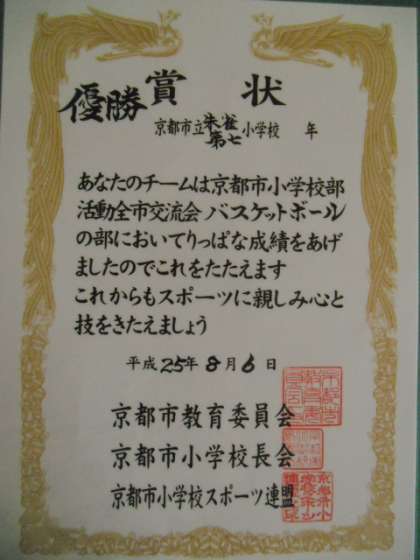 賞状
優勝
京都市立朱雀第七小学校 年
あなたのチームは京都市小学校部
活動全市交流会バスケットボール
の部においてりっぱな成績をあげ
ましたのでこれをたたえます
これからもスポーツに親しみ心と
技をきたえましょう
平成25年8月6日
京都市教育委員会
京都市小学校長会
京都市小学校スポーツ連盟